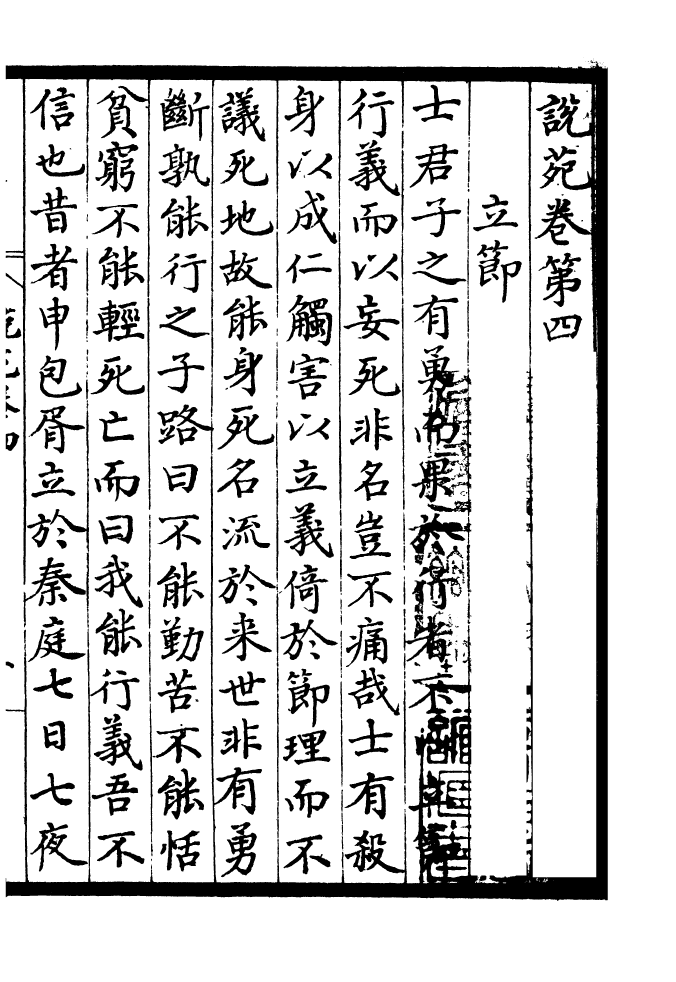 說苑卷第四
立節
士君子之有勇而果於行者不以立節
行義而以妄死非名豈不痛哉士有殺
身以成仁觸害以立義倚於節理而不
議死地故能身死名流於来世非有勇
斷孰能行之子路曰不能勤苦不能恬
貧窮不能輕死亡而曰我能行義吾不
信也昔者申包胥立於秦庭七日七夜